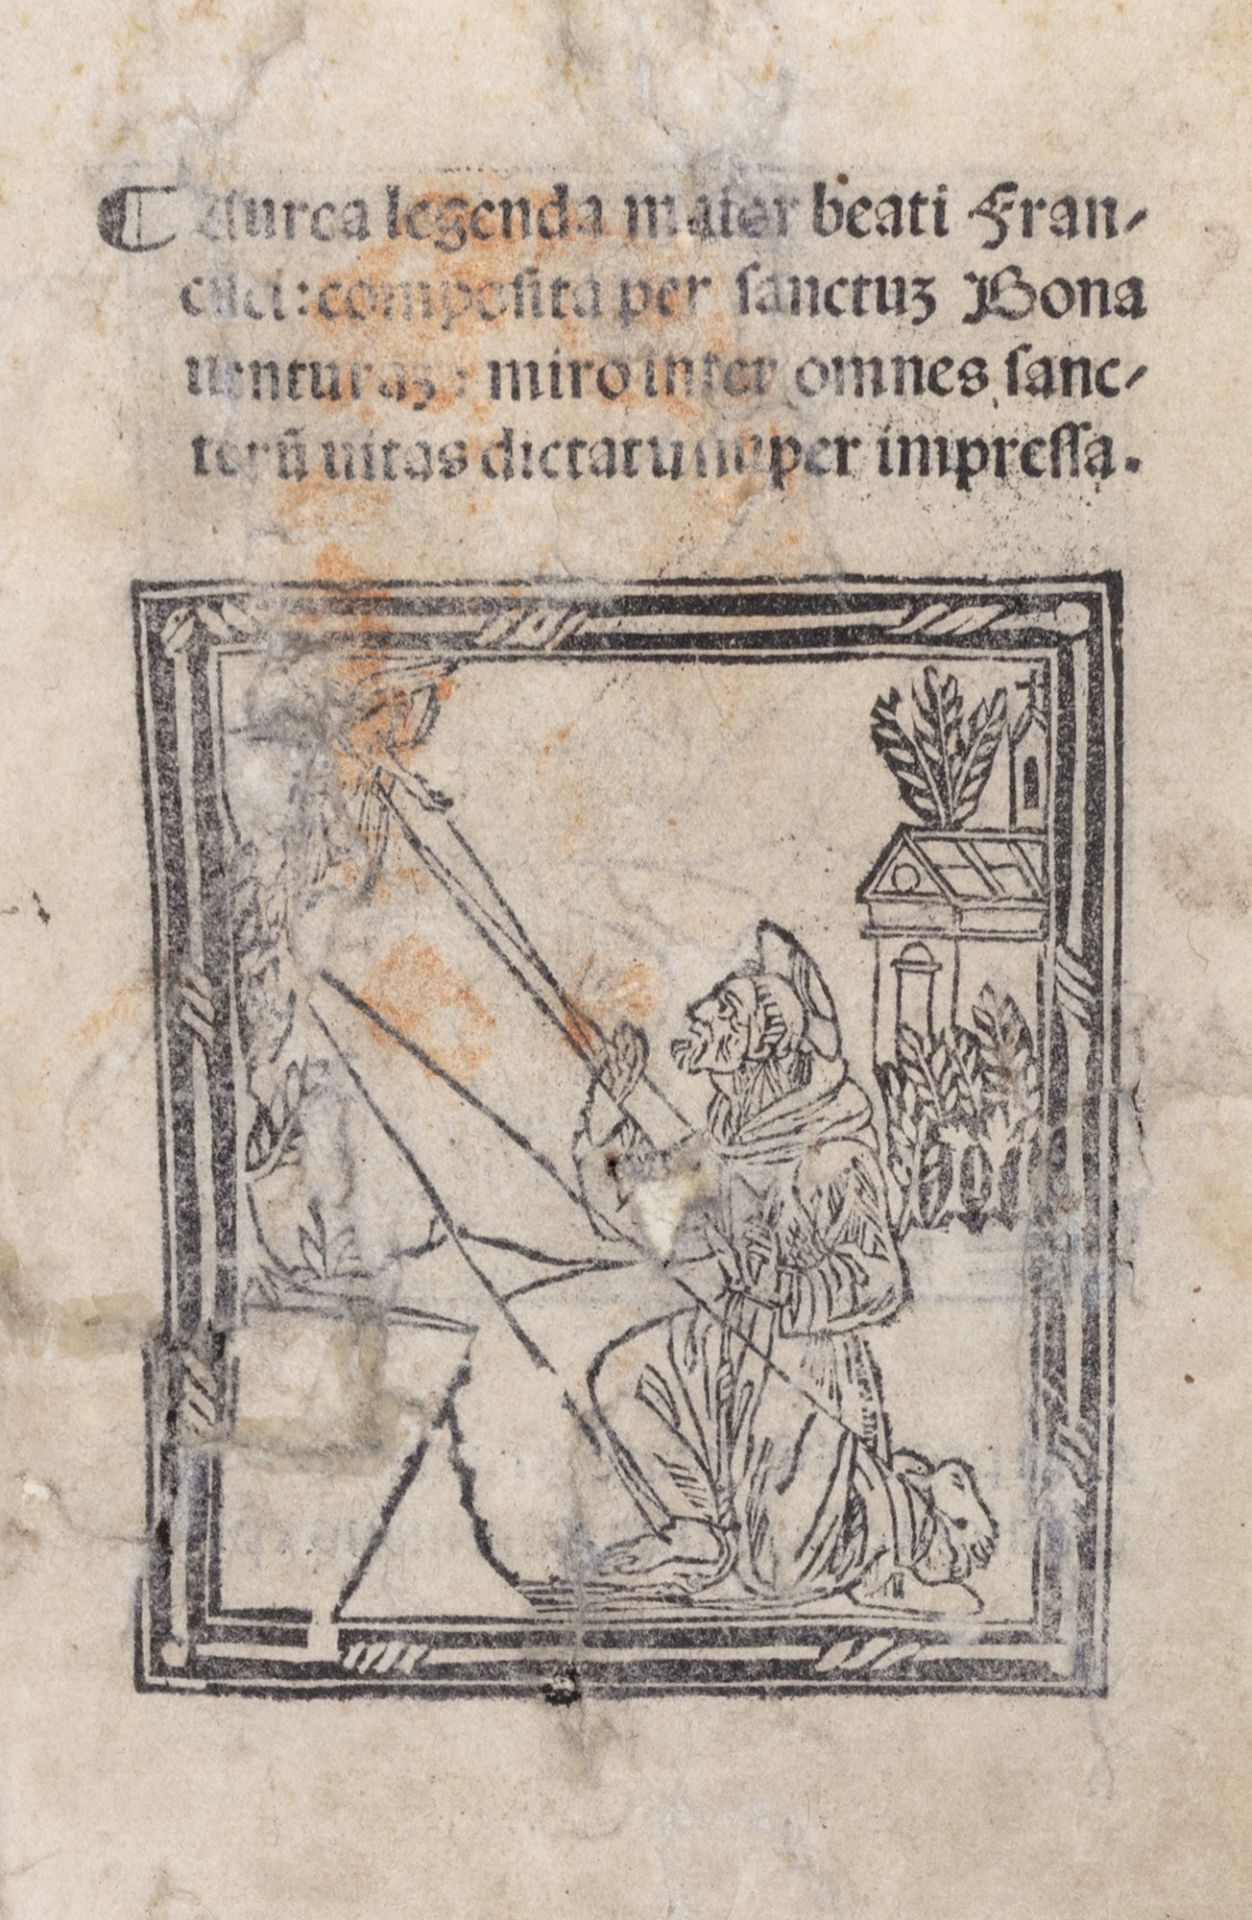 ¶ Aurea legenda maior beati Fran-
cisci: composita per sanctuꝫ Bona
uenturaꝫ: miro inter omnes sanc-
torū uitas dictatu nuper impressa.